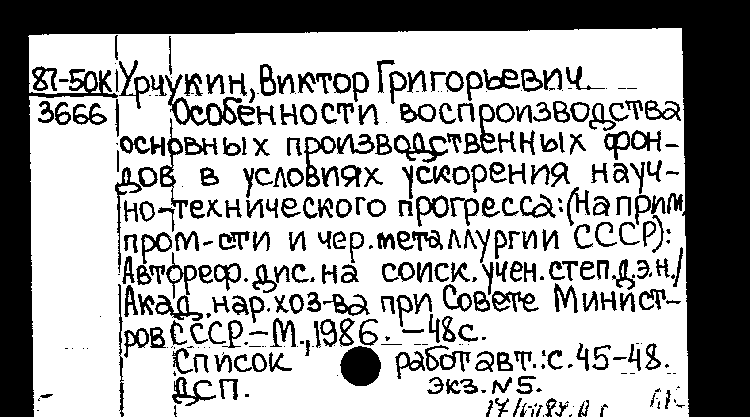 87-50К Урчукин, Виктор Григорьевич.
3666 Особенности воспроизводства
основных производственных фон-
дов в условиях ускорения науч-
но-технического прогресса: (На прим.
пром-сти и чер. металлургии СССР):
Автореф. дис. на соиск. учен. степ. д.э.н./
Акад. нар. хоз-ва при Совете Минист-
ров СССР.-М., 1986. -48с.
Список работ авт.: с. 45-48.
ДСП. экз. N5.